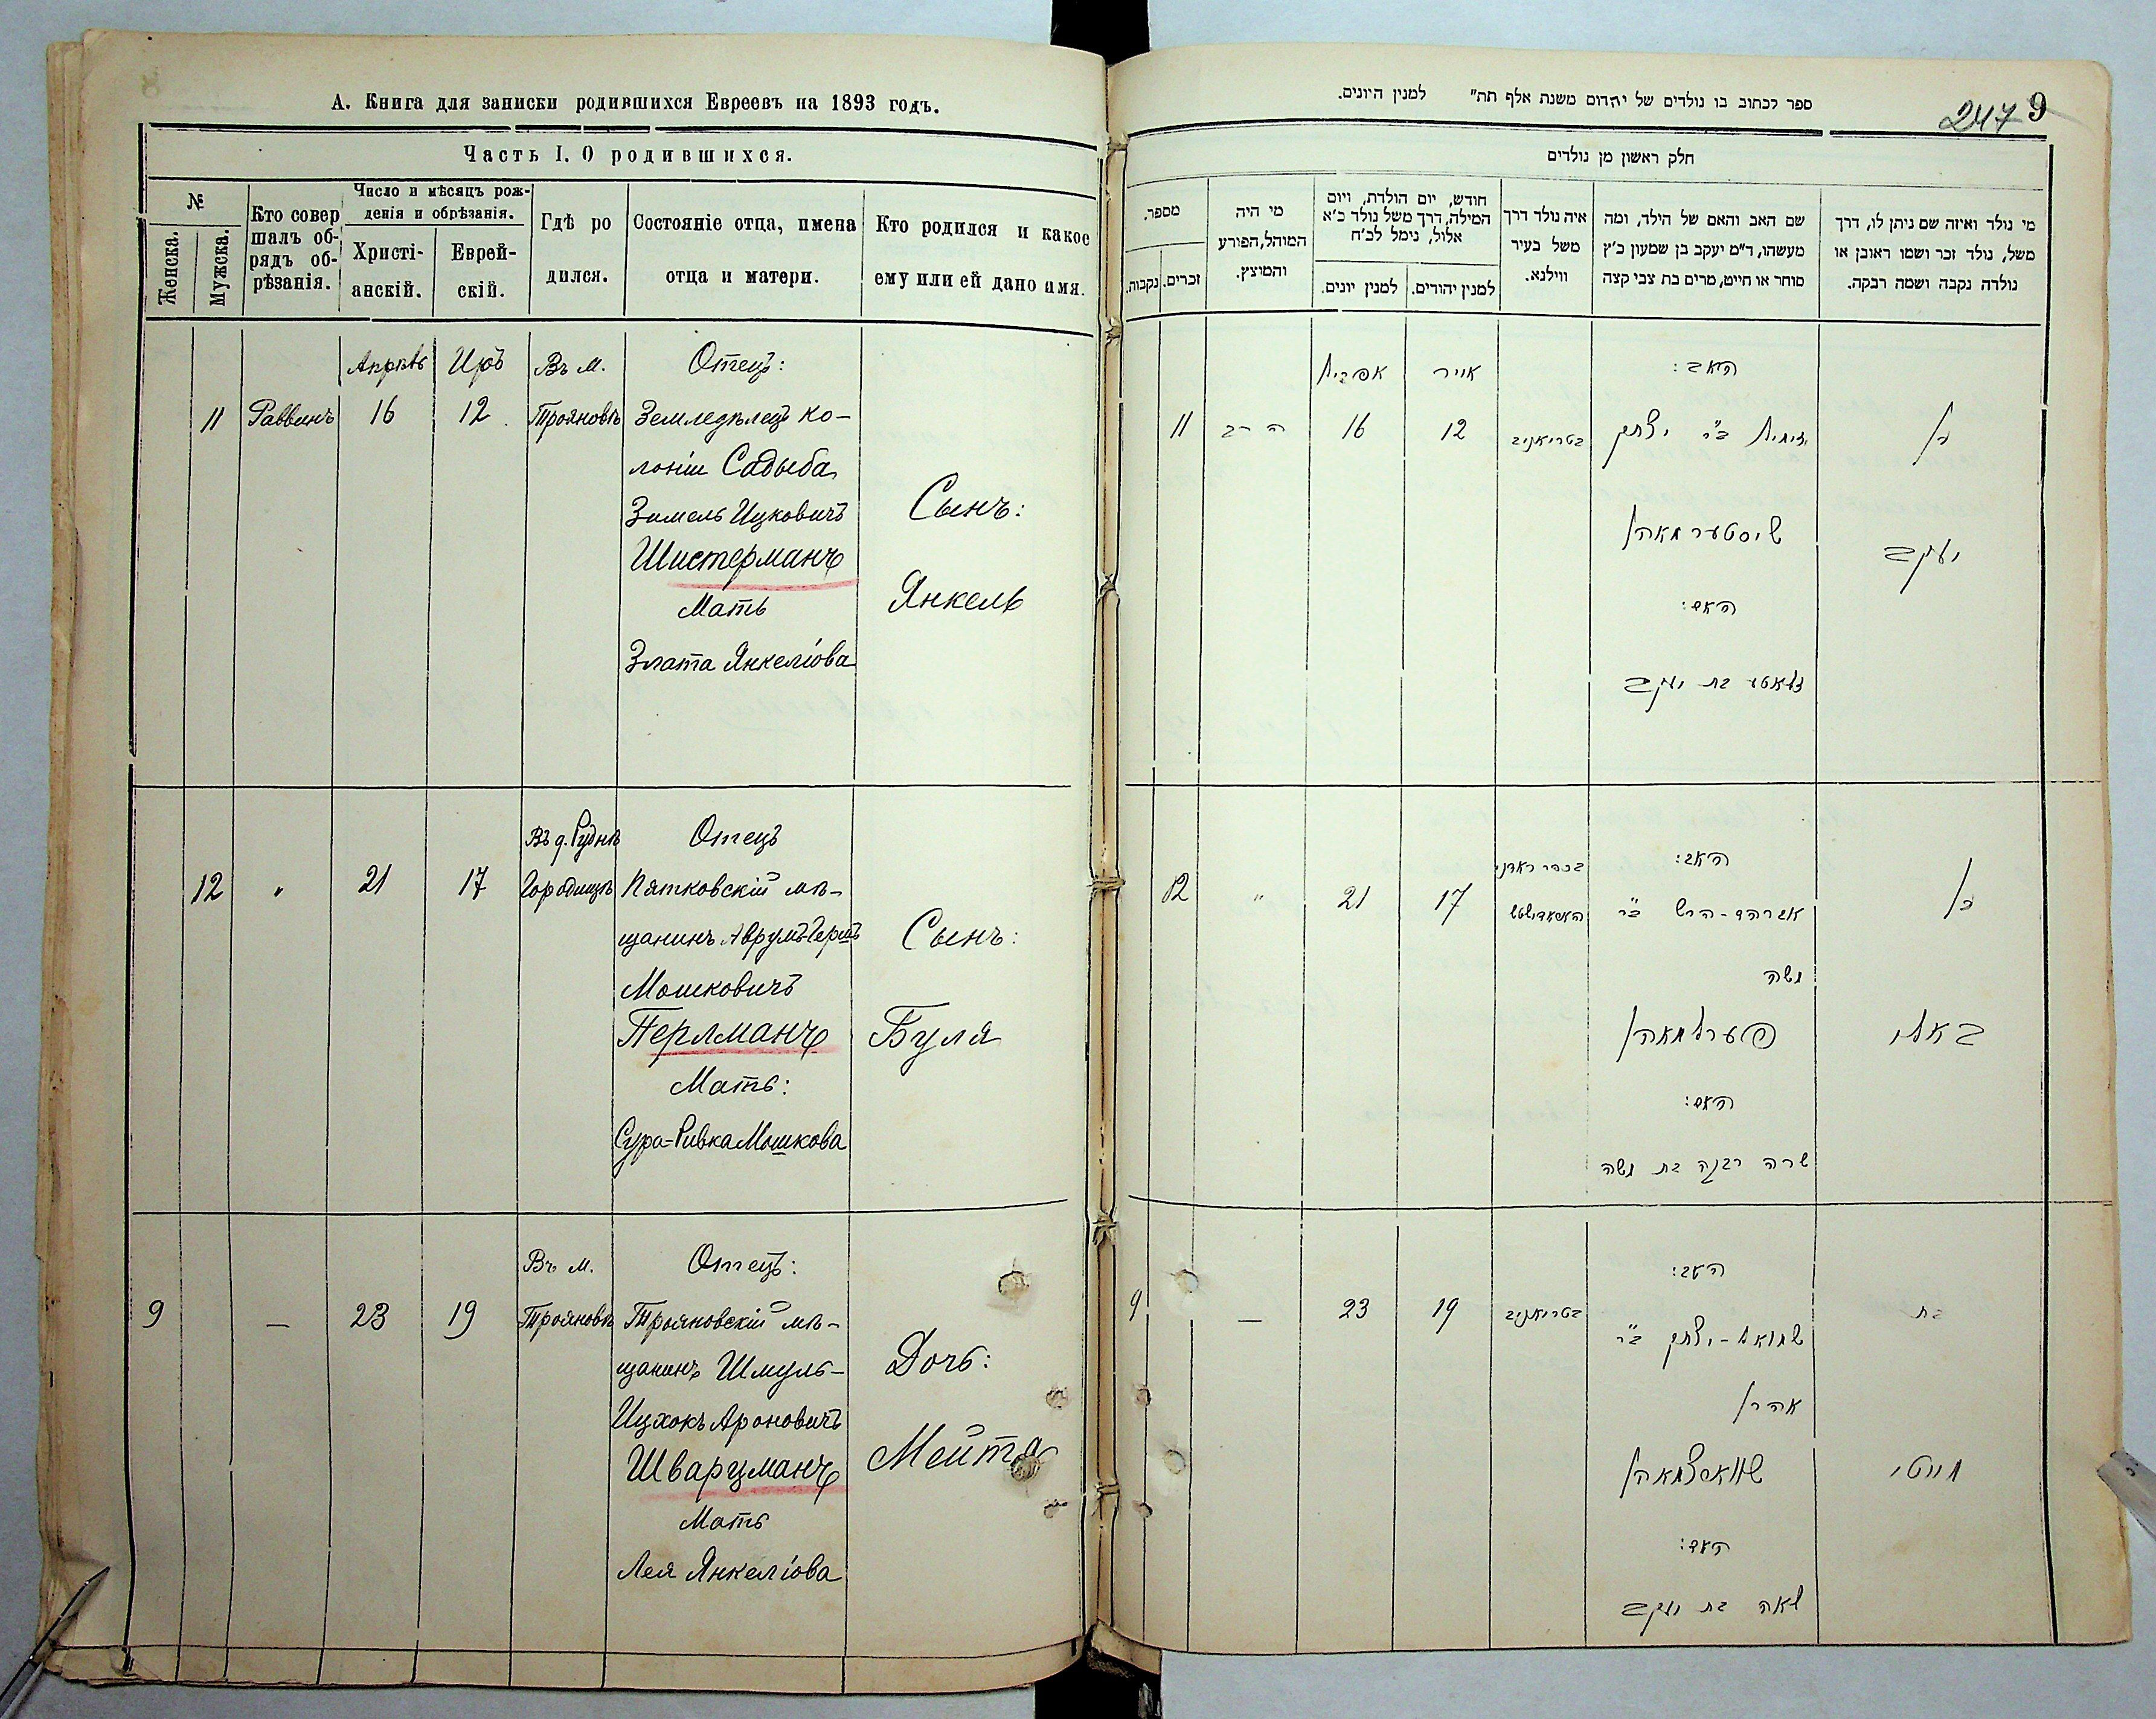 А. Книга для записки родившихся Евреевъ на 1893 годъ.
Часть I. О родившихся.
№
Женска.
Мужска.
Кто совер
шалъ об-
рядъ об-
рѣзанія.
Число и мѣсяцъ рож-
денія и обрѣзанія.
Христі-
анскій.
Еврей-
скій.
Гдѣ ро
дился.
Состояніе отца, имена
отца и матери.
Кто родился и какое
ему или ей дано имя.
11
Раввинъ
Апрѣль
16
Иръ
12
Въ м.
Трояновѣ
Отецъ:
Земледѣлецъ ко-
лоніи Садыба
Зимель Ицковичъ
Шистерманъ
Мать
Злата Янкеліова
Сынъ:
Янкель
12
"
21
17
Въ д. Руднѣ
Городищѣ
Отецъ
Пятковскій мѣ-
щанинъ Аврумъ-Гершъ
Мошковичъ
Перлманъ
Мать:
Сура-Ривка Мошкова
Сынъ:
Буля
9
—
23
19
Въ м.
Трояновѣ
Отецъ:
Трояновскій мѣ-
щанинъ Шмуль-
Ицхокъ Ароновичъ
Шварцманъ
Мать
Лея Янкеліова
Дочь:
Мейта
ספר לכתוב בו נולדים של יהדום משנת אלף תת" למנין היונים.
247 9
חלק ראשון מן נולדים
מי נולד ואיזה שם ניתן לו, דרך
משל, נולד זכר ושמו ראובן או
נולדה נקבה ושמה רבקה.
שם האב והאם של הילד, ומה
מעשהו, ד"מ יעקב בן שמעון כ"ץ
סוחר או חייט, מרים בת צבי קצה
איה נולד דרך
משל בעיר
ווילנא.
חודש, יום הולדת, ויום
המילה, דרך משל נולד כ"א
אלול, נימל לכ"ח
למנין יהודים.
למנין יונים.
מי היה
המוהל, הפורע
והמוצץ.
מספר.
זכרים.
נקבות.
בן
יעקב
האב:
זימיל ב"ר יצחק
שיסטערמאהן
האם:
זלאטע בת יעקב
בטריאניב
אייר
12
אפריל
16
הרב
11
בן
באלי
האב:
אברהם-הרש ב"ר
משה
פערלמאהן
האם:
שרה רבקה בת משה
17
21
"
12
בת
מייטי
האב:
שמואל-יצחק ב"ר
אהרן
שווארצמאהן
האם:
לאה בת יעקב
בטריאניב
19
23
—
9